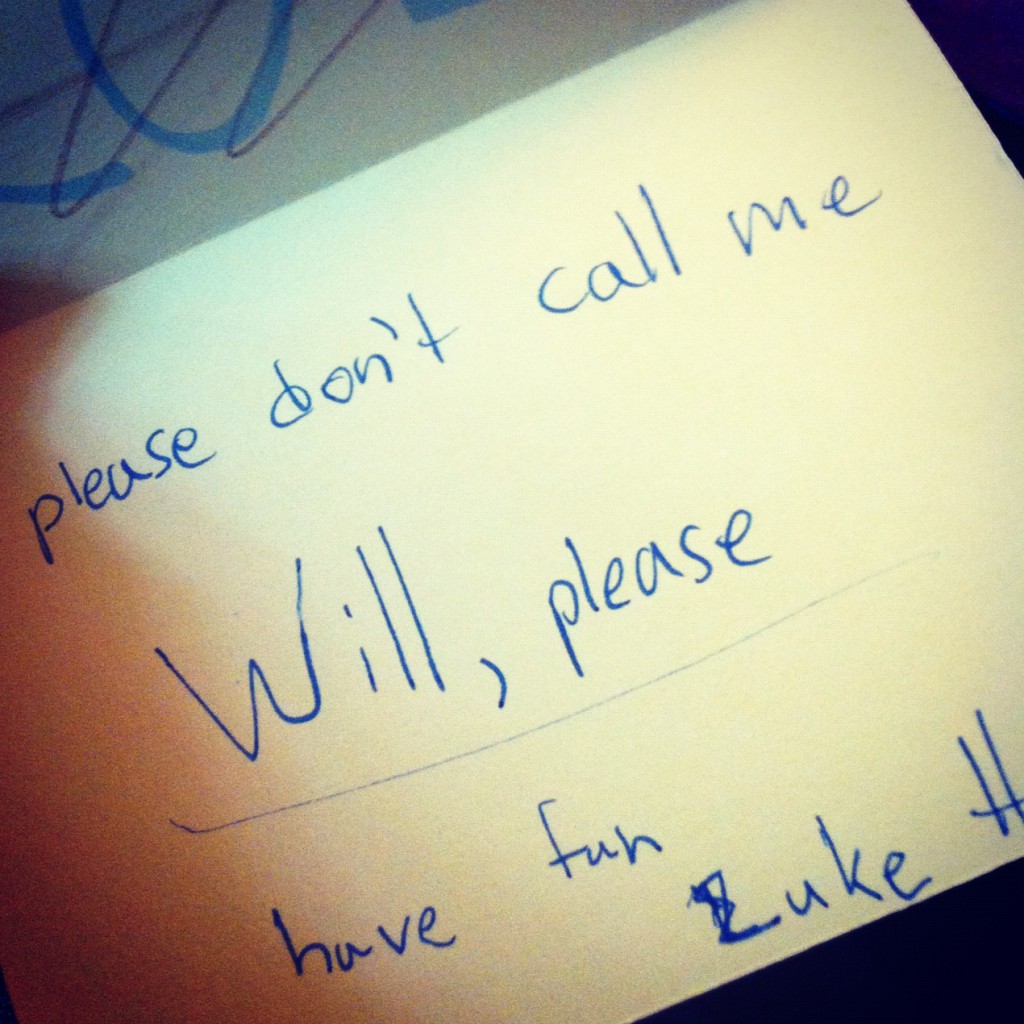 please don't call me
Will, please
have fun
Luke H